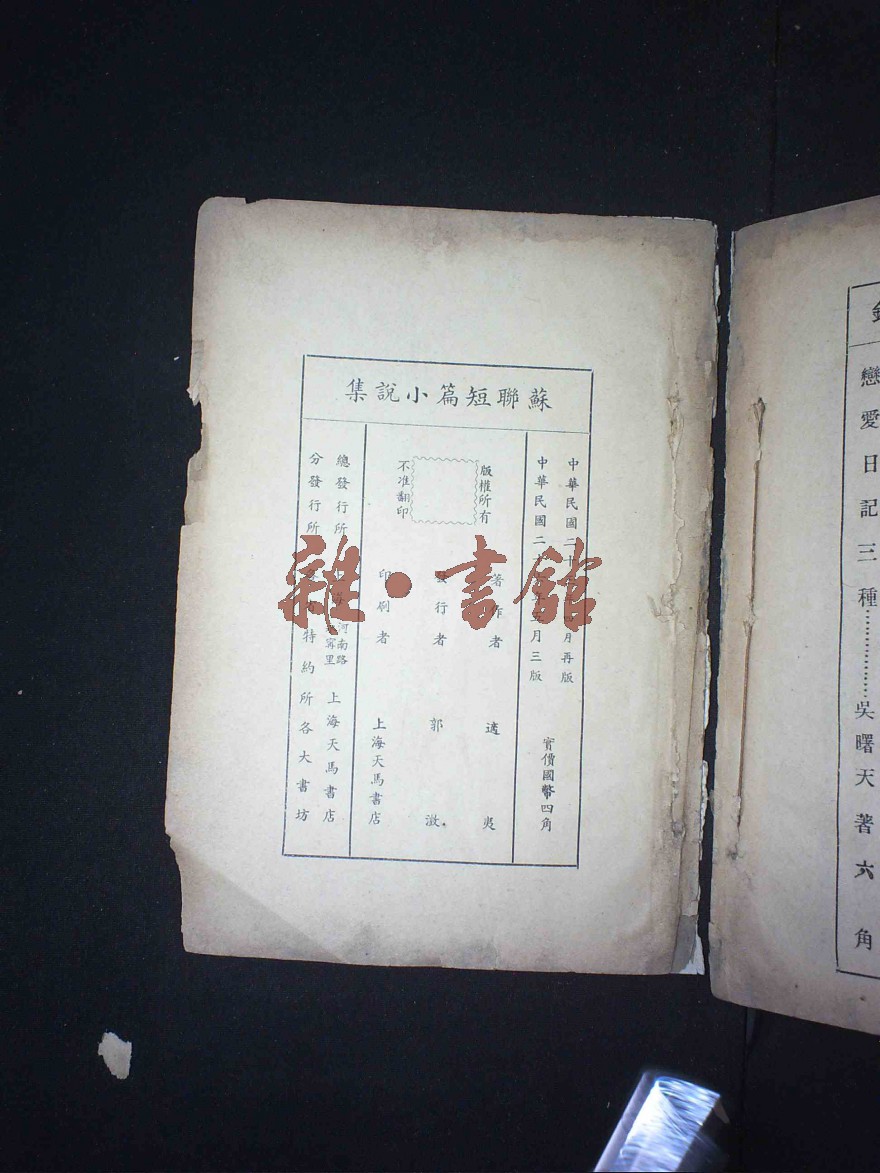 蘇聯短篇小說集
中華民國二十月再版
中華民國二五月三版
實價國幣四角
版權所有
不准翻印
著作者 適夷
發行者 郭澂
印刷者 上海天馬書店
總發行所 河南路 上海天馬書店
分發行所 特約所各大書坊
雜·書館
戀愛日記三種………………吳曙天著 六角